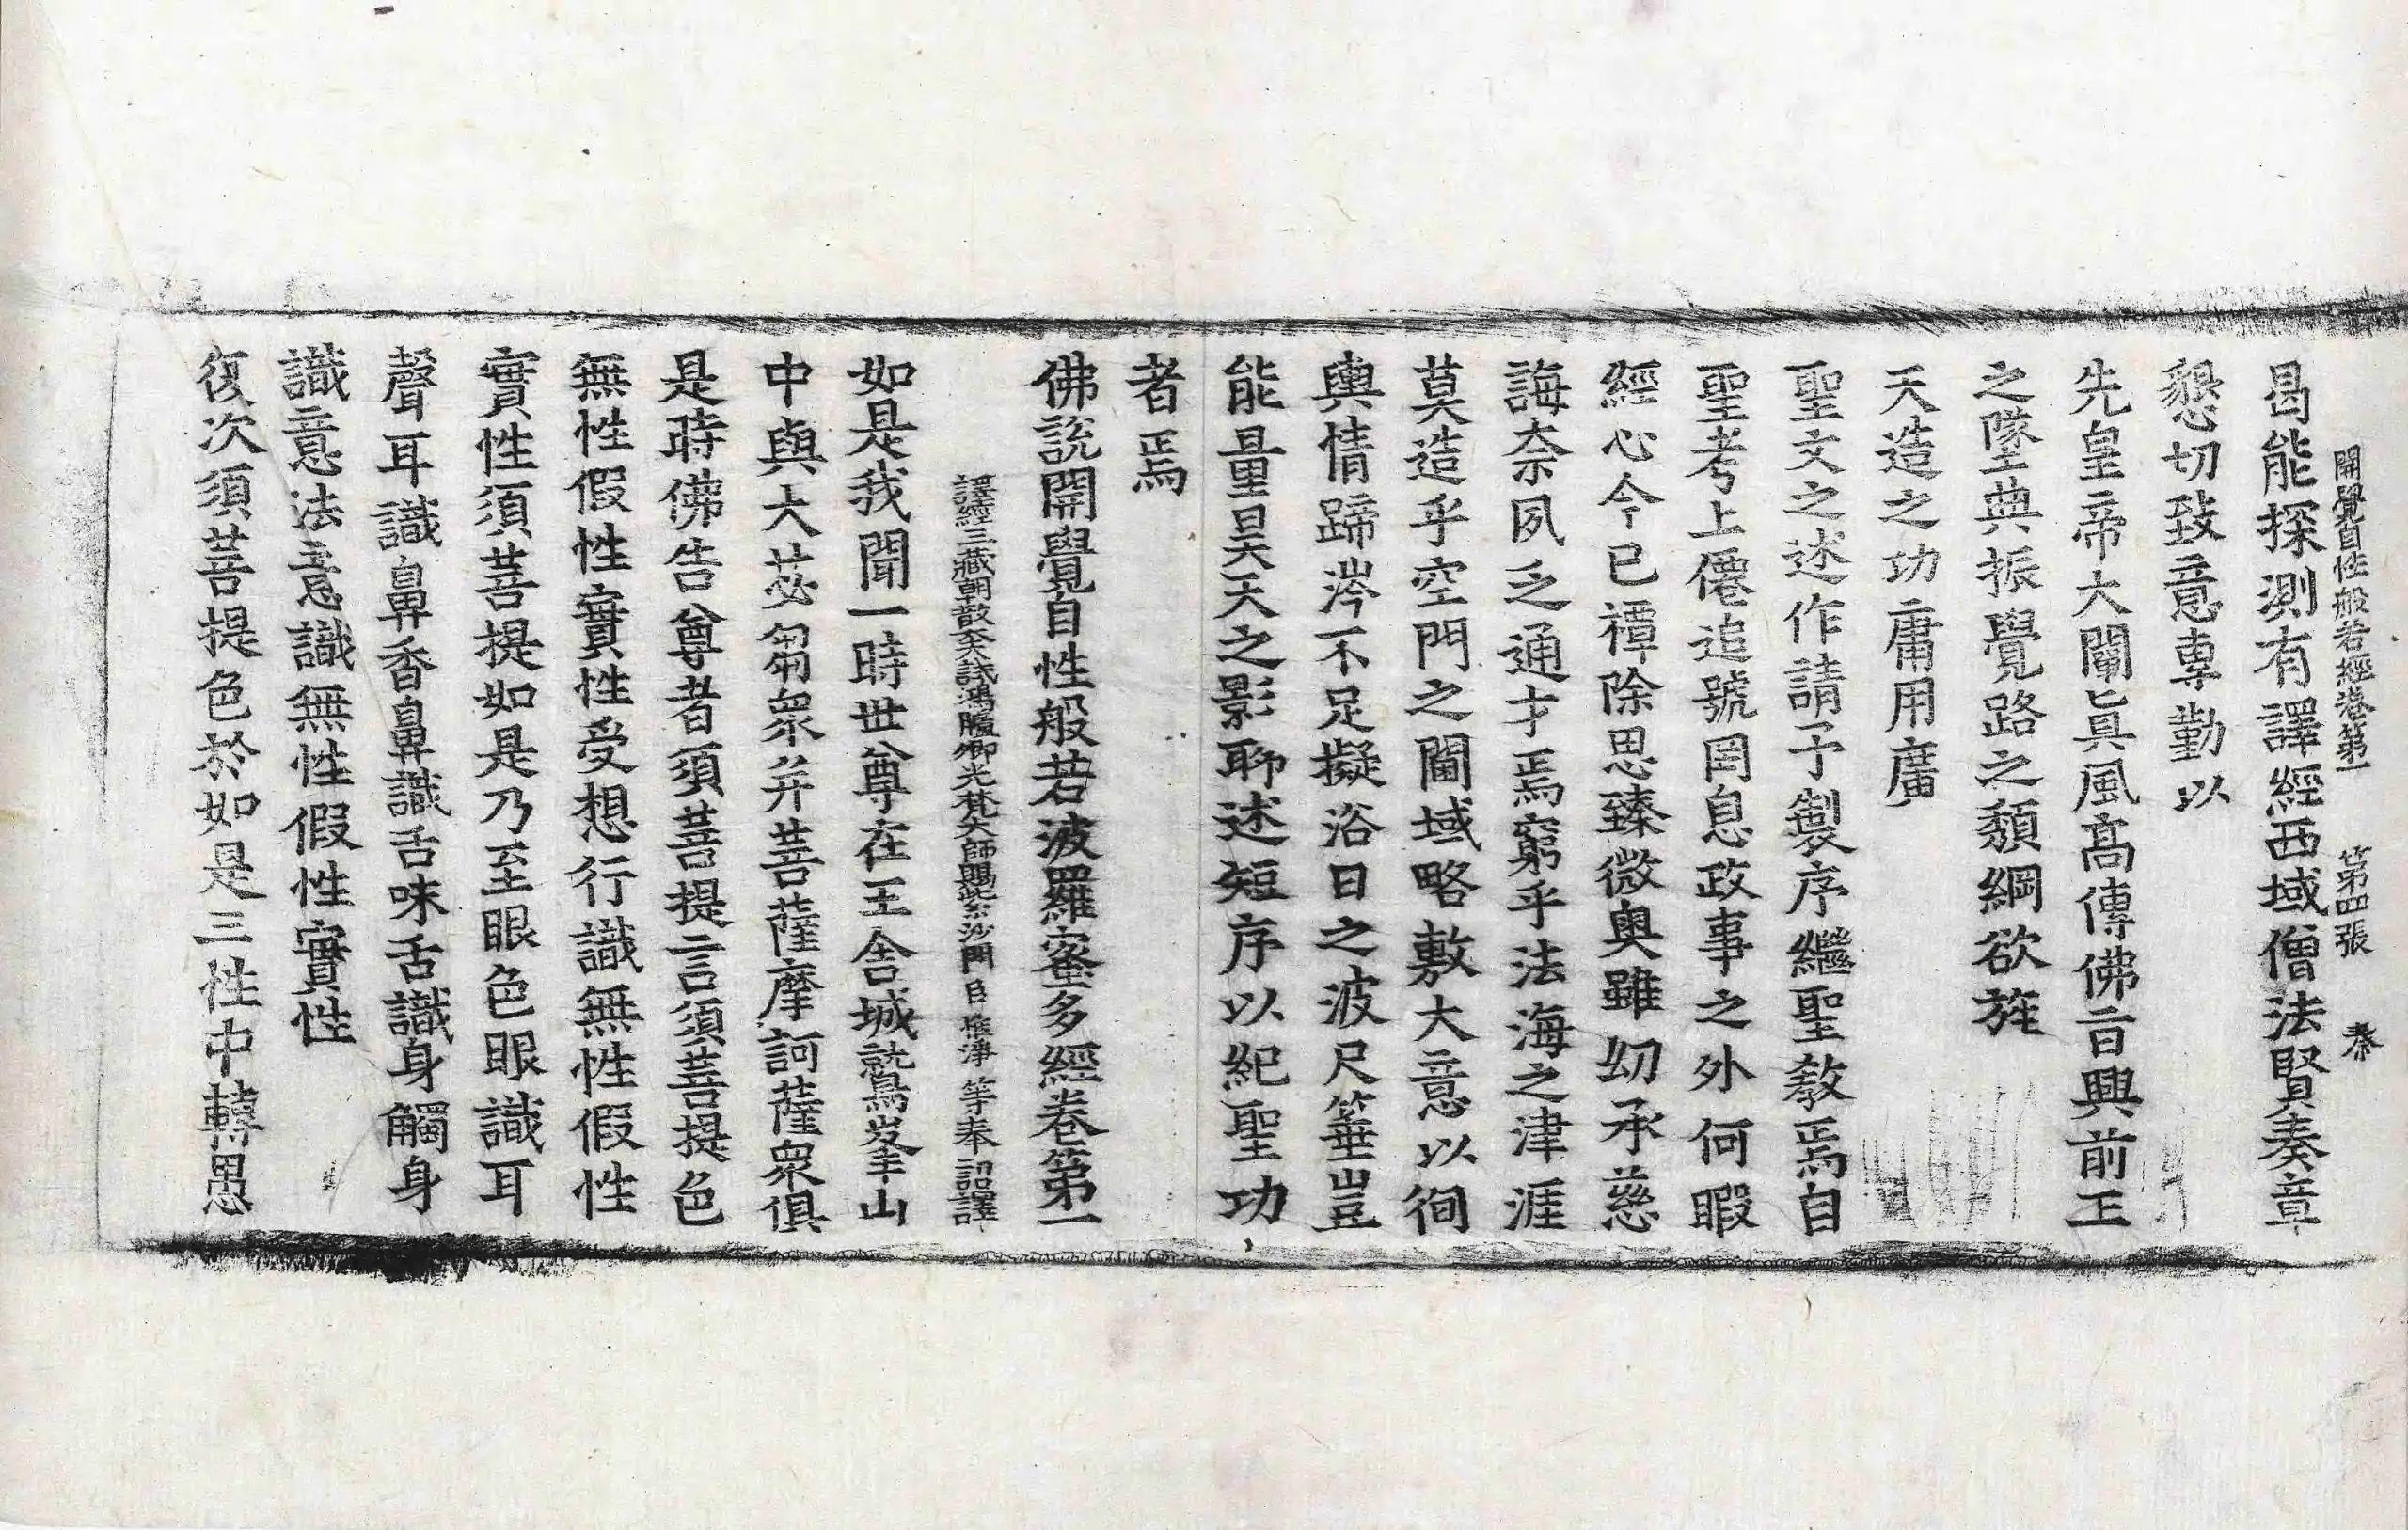 開覺自性般若經卷第一　第四張　秦
曷能探測有譯經西域僧法賢奏章
懇切致意專勤以
先皇帝大闡眞風高傳佛旨興前王
之墜典振覺路之頹綱欲旌
天造之功庸用廣
聖文之述作請予製序繼聖教焉自
聖考上僊追號罔息政事之外何暇
經心今已禫除思臻微奧雖紉承慈
誨柰夙乏通才焉窮乎法海之津涯
莫造乎空門之閫域略敷大意以徇
輿情蹄涔不足擬浴日之波尺箠豈
能量昊天之影聊述短序以紀聖功
者焉
佛說開覺自性般若波羅蜜多經卷第一
譯經三藏朝散大夫試鴻臚卿光梵大師賜紫沙門臣惟淨等奉詔譯
如是我聞一時世尊在王舍城鷲峯山
中與大苾芻衆并菩薩摩訶薩衆俱
是時佛告尊者須菩提言須菩提色
無性假性實性受想行識無性假性
實性須菩提如是乃至眼色眼識耳
聲耳識鼻香鼻識舌味舌識身觸身
識意法意識無性假性實性
復次須菩提色於如是三性中轉愚